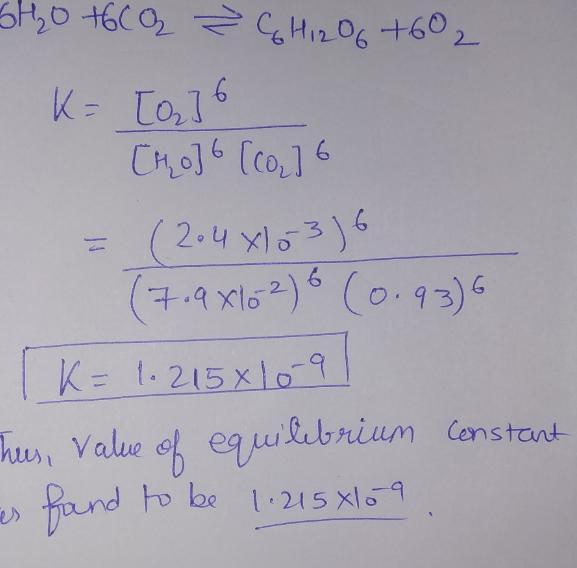 6H2O +6CO2 ⇌ C6H12O6 +6O2
K = [O2]6
[H2O]6 [CO2]6
= (2.4 x10-3)6
(7.9 x10-2)6 (0.93)6
K = 1.215 x10-9
Thus, Value of equilibrium Constant
is found to be 1.215 x10-9.